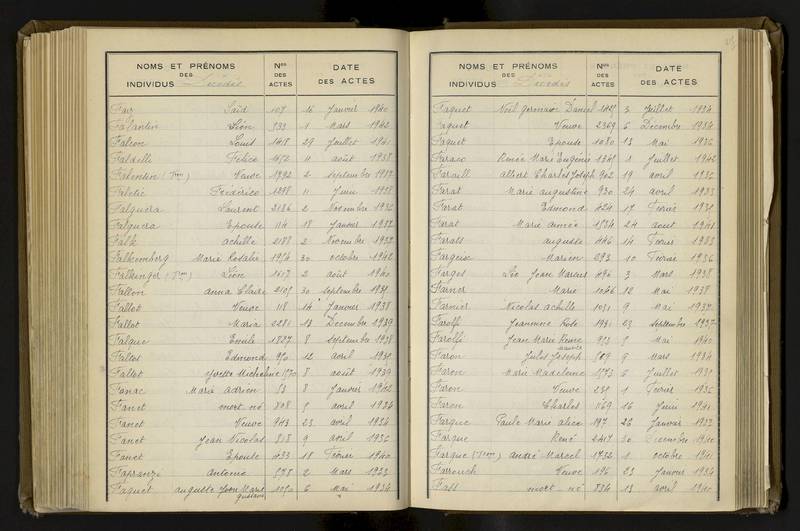 NOMS ET PRÉNOMS
DES
INDIVIDUS Décédés
Nos
DES
ACTES
DATE
DES ACTES
Faiz Saïd 107 16 Janvier 1940
Falantin Léon 533 1 Mars 1942
Falcon Louis 1418 29 Juillet 1941
Faldelli Félice 1472 11 août 1938
Falentin Veuve 1392 2 septembre 1937
Faletic Fédérico 1238 11 Juin 1938
Falguera Laurent 2186 2 Novembre 1932
Falguera Epouse 114 18 Janvier 1937
Falk achille 2188 2 Novembre 1932
Falkemberg Marie Rosalie 1954 30 octobre 1942
Falkinger Léon 1617 2 août 1940
Fallon anna Claire 2105 30 septembre 1931
Fallot Veuve 118 14 Janvier 1938
Fallot Maria 2281 13 Decembre 1939
Falque Emile 1887 8 septembre 1938
Fallot Edmond 12 avril 1931
Fallot Yvette Micheline 1570 8 août 1939
Fanac Marie Adrien 53 8 Janvier 1942
Fanet mort né 808 9 avril 1934
Fanet Veuve 943 23 avril 1934
Fanet Jean Nicolas 858 9 avril 1936
Fanet Epouse 433 18 Février 1940
Fapranzi antonio 578 2 Mars 1933
Faquet auguste Jean Marie 1090 6 Mai 1934
gustave
NOMS ET PRÉNOMS
DES
INDIVIDUS Décédés
Nos
DES
ACTES
DATE
DES ACTES
Faquet Noël Germain Daniel 3 Juillet 1934
Faquet Veuve 2369 6 Décembre 1934
Faquet Epouse 1080 13 Mai 1936
Faraco Renée Marie Eugénie 1341 1 Juillet 1942
Faraill albert Charles Joseph 902 19 avril 1936
Farat Marie augustine 930 24 avril 1933
Farat Edmond 424 17 Février 1931
Farat Marie aimée 1534 24 aout 1941
Farats auguste 446 14 Février 1933
Fargeix Marien 293 10 Février 1936
Farges Léo Jean Marcus 496 3 Mars 1938
Farner Marie 1046 12 Mai 1938
Farnier Nicolas achille 1031 9 Mai 1937
Farolfi Jeannine Rose 1931 23 septembre 1937
Farolfi Jean Marie René 953 8 Mai 1940
Faron Jules Joseph 589 9 Mars 1934
Faron Marie Madeleine 1573 6 Juillet 1931
Faron Veuve 1 Février 1936
Faron Charles 1169 16 Juin 1941
Farque Paule Marie alice 197 26 Janvier 1933
Farque René 2417 30 Decembre 1940
Farque andré Marcel 1732 1 octobre 1941
Farouch Veuve 196 23 Janvier 1934
Fass mort né 834 13 avril 1940